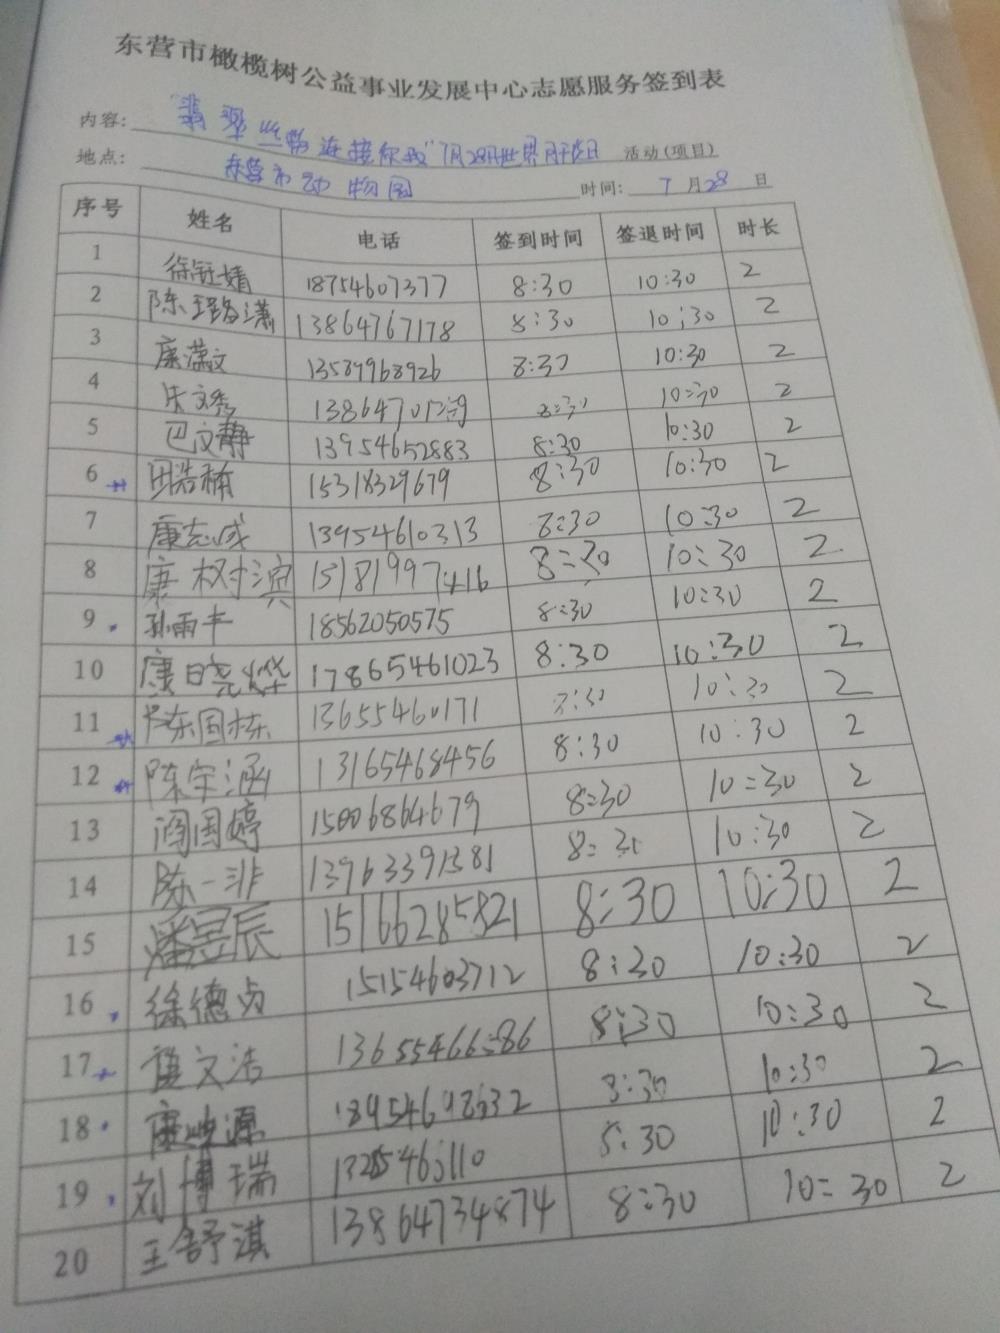 东营市橄榄树公益事业发展中心志愿服务签到表
内容: "翡翠丝带连接你我"7月28日世界肝炎日 活动(项目)
地点: 东营市动物园 时间: 7月28日
序号 姓名 电话 签到时间 签退时间 时长
1 徐钰婧 18754607377 8:30 10:30 2
2 陈珺潇 13864767178 8:30 10:30 2
3 康潇文 13589968926 8:30 10:30 2
4 朱文秀 8:30 10:30 2
5 巴文静 13954652883 8:30 10:30 2
6 田浩楠 15318329679 8:30 10:30 2
7 康志成 13954610313 8:30 10:30 2
8 康树滨 15181997416 8:30 10:30 2
9 孙雨丰 18562050575 8:30 10:30 2
10 康晓烨 17865461023 8:30 10:30 2
11 陈国栋 13655460171 8:30 10:30 2
12 陈宇涵 13165468456 8:30 10:30 2
13 阎国婷 15006864679 8:30 10:30 2
14 陈一非 13963391381 8:30 10:30 2
15 潘昱辰 15166285821 8:30 10:30 2
16 徐德贞 15154603712 8:30 10:30 2
17 文洁 13655466586 8:30 10:30 2
18 康 源 8:30 10:30 2
19 刘博瑞 8:30 10:30 2
20 王舒淇 13864734874 8:30 10:30 2